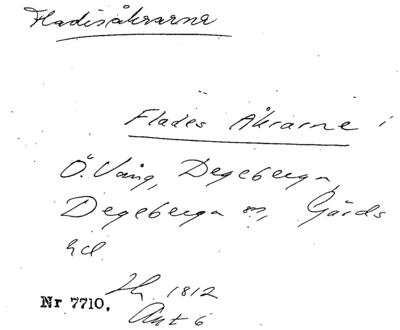 Fladisåkrarne
Flades Åkrarne i
Ö. Vång, Degeberga,
Degeberga sn, Gärds
hd
1812
Nr 7710. Akt 6